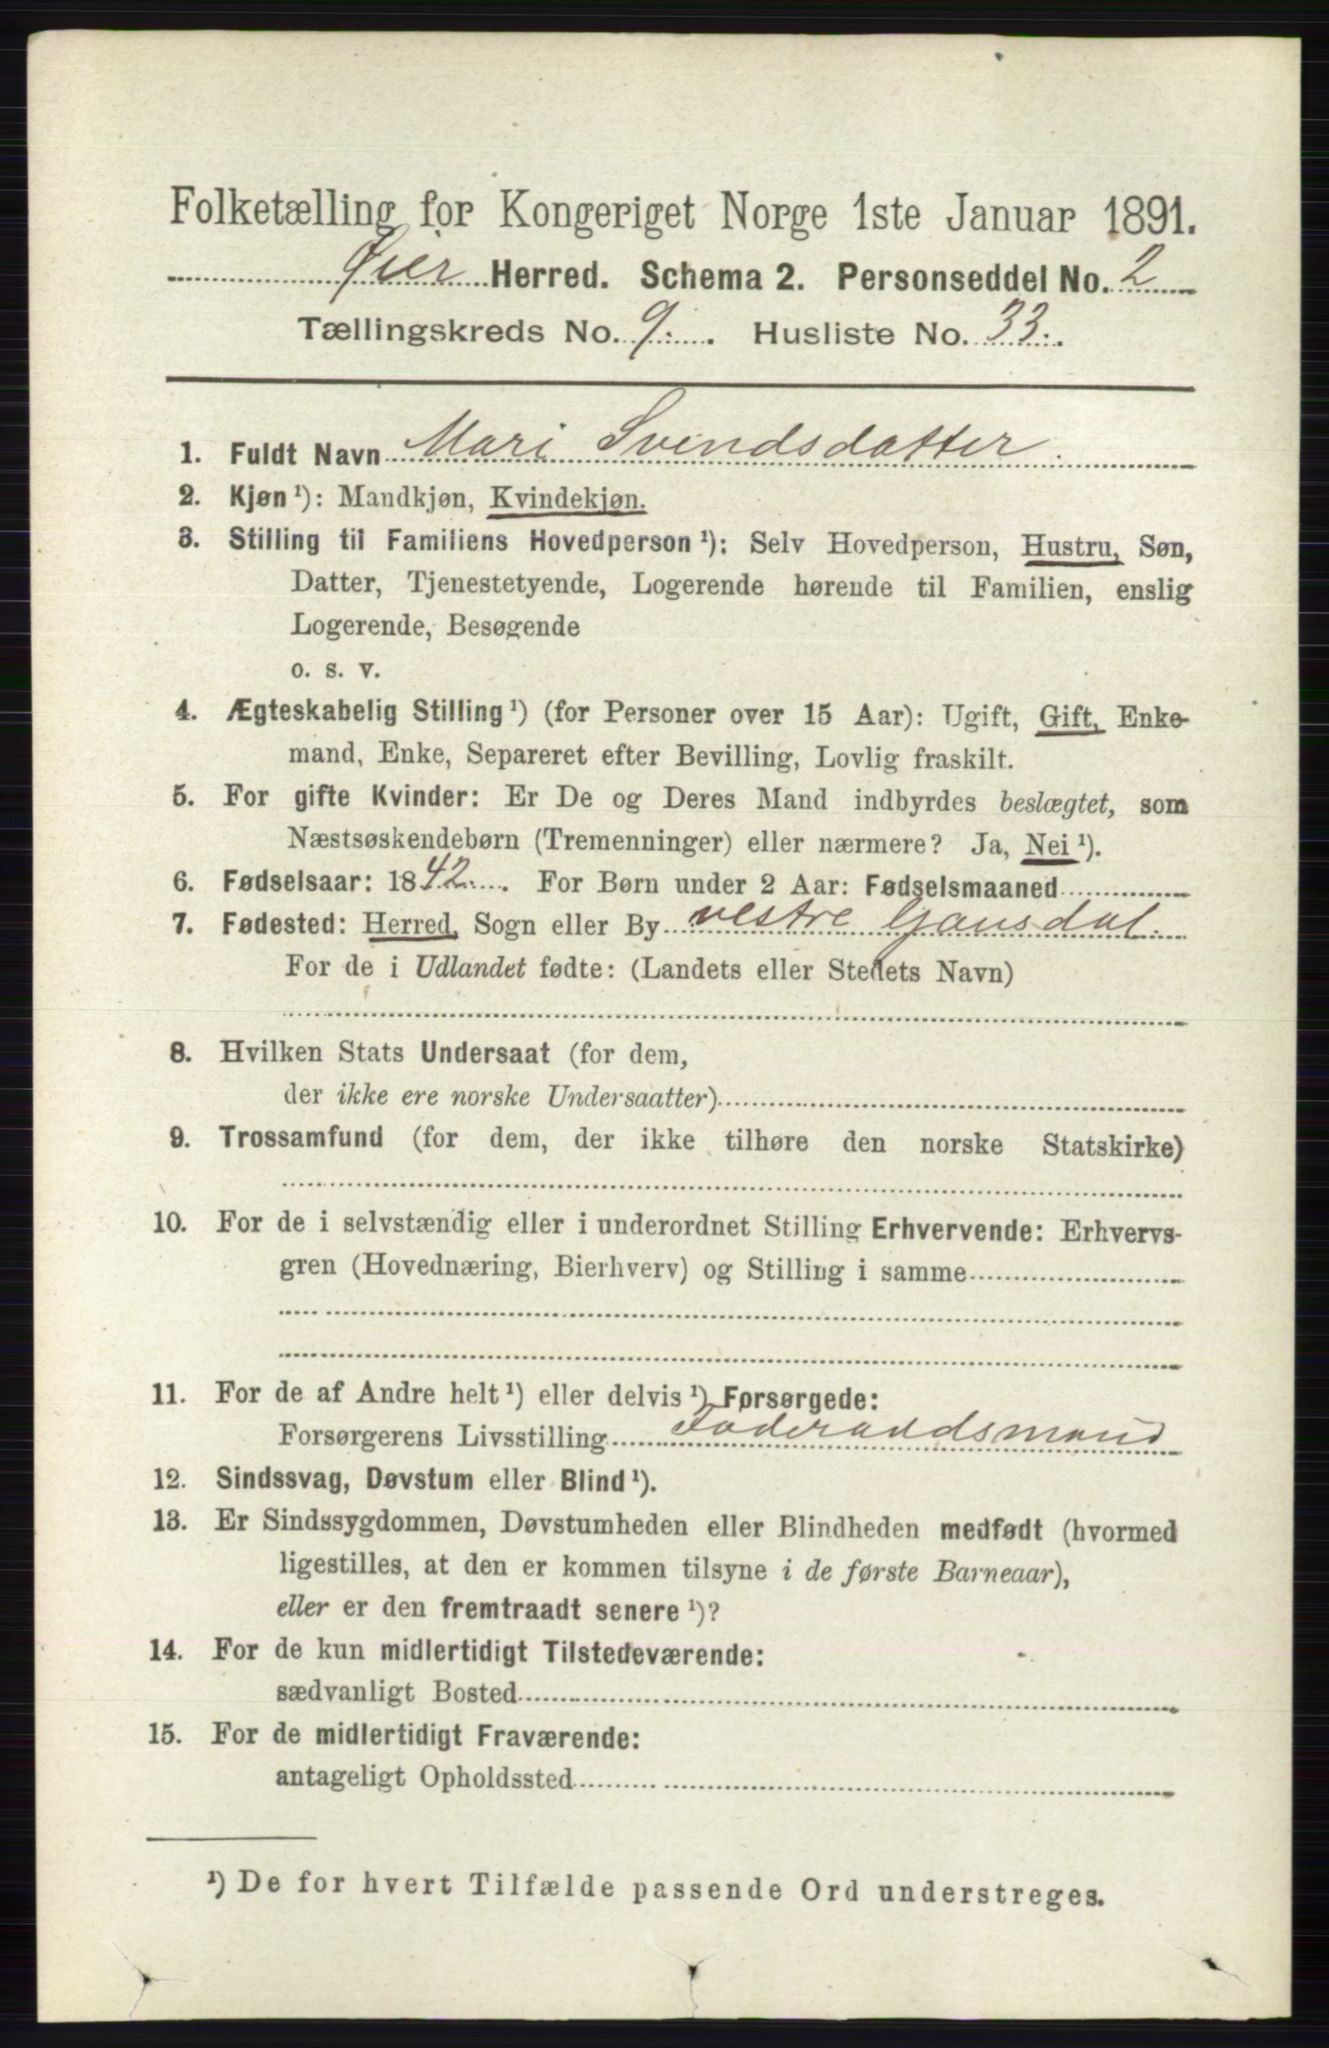 Folketælling for Kongeriget Norge 1ste Januar 1891.
Øier Herred. Schema 2. Personseddel No. 2
Tællingskreds No. 9. Husliste No. 33.
1. Fuldt Navn Mari Svendsdatter.
2. Kjøn¹): Mandkjøn, Kvindekjøn.
3. Stilling til Familiens Hovedperson¹): Selv Hovedperson, Hustru, Søn,
Datter, Tjenestetyende, Logerende hørende til Familien, enslig
Logerende, Besøgende
o. s. v.
4. Ægteskabelig Stilling¹) (for Personer over 15 Aar): Ugift, Gift, Enke-
mand, Enke, Separeret efter Bevilling, Lovlig fraskilt.
5. For gifte Kvinder: Er De og Deres Mand indbyrdes beslægtet, som
Næstsøskendebørn (Tremenninger) eller nærmere? Ja, Nei¹).
6. Fødselsaar: 1842. For Børn under 2 Aar: Fødselsmaaned
7. Fødested: Herred, Sogn eller By vestre Gausdal.
For de i Udlandet fødte: (Landets eller Stedets Navn)
8. Hvilken Stats Undersaat (for dem,
der ikke ere norske Undersaatter)
9. Trossamfund (for dem, der ikke tilhøre den norske Statskirke)
10. For de i selvstændig eller i underordnet Stilling Erhvervende: Erhvervs-
gren (Hovednæring, Bierhverv) og Stilling i samme
11. For de af Andre helt¹) eller delvis¹) Forsørgede:
Forsørgerens Livsstilling Foderaadsmand
12. Sindssvag, Døvstum eller Blind¹).
13. Er Sindssygdommen, Døvstumheden eller Blindheden medfødt (hvormed
ligestilles, at den er kommen tilsyne i de første Barneaar),
eller er den fremtraadt senere¹)?
14. For de kun midlertidigt Tilstedeværende:
sædvanligt Bosted
15. For de midlertidigt Fraværende:
antageligt Opholdssted
¹) De for hvert Tilfælde passende Ord understreges.